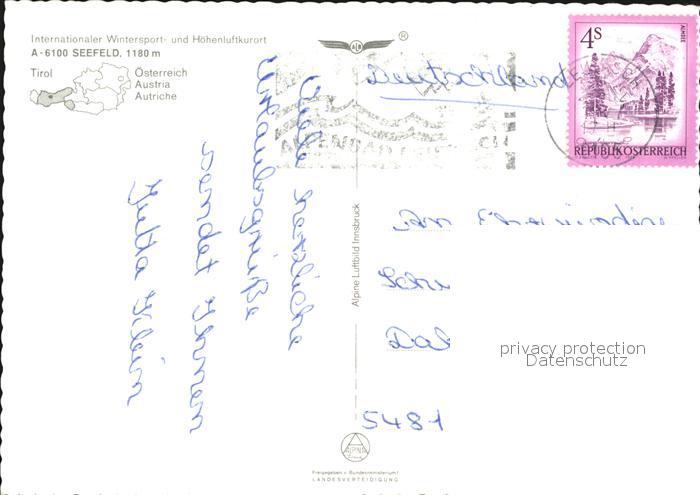 Internationaler Wintersport- und Höhenluftkurort
A-6100 SEEFELD, 1180 m
Tirol
Österreich
Austria
Autriche
ALD
®
4S
REPUBLIK ÖSTERREICH
Deutschland
Viele herzliche
Urlaubsgrüße
sendet Ihnen
Jutta Klein
Alpine Luftbild Innsbruck
An
5481
privacy protection
Datenschutz
ALPINE
Freigegeben v. Bundesministerium f.
LANDESVERTEIDIGUNG